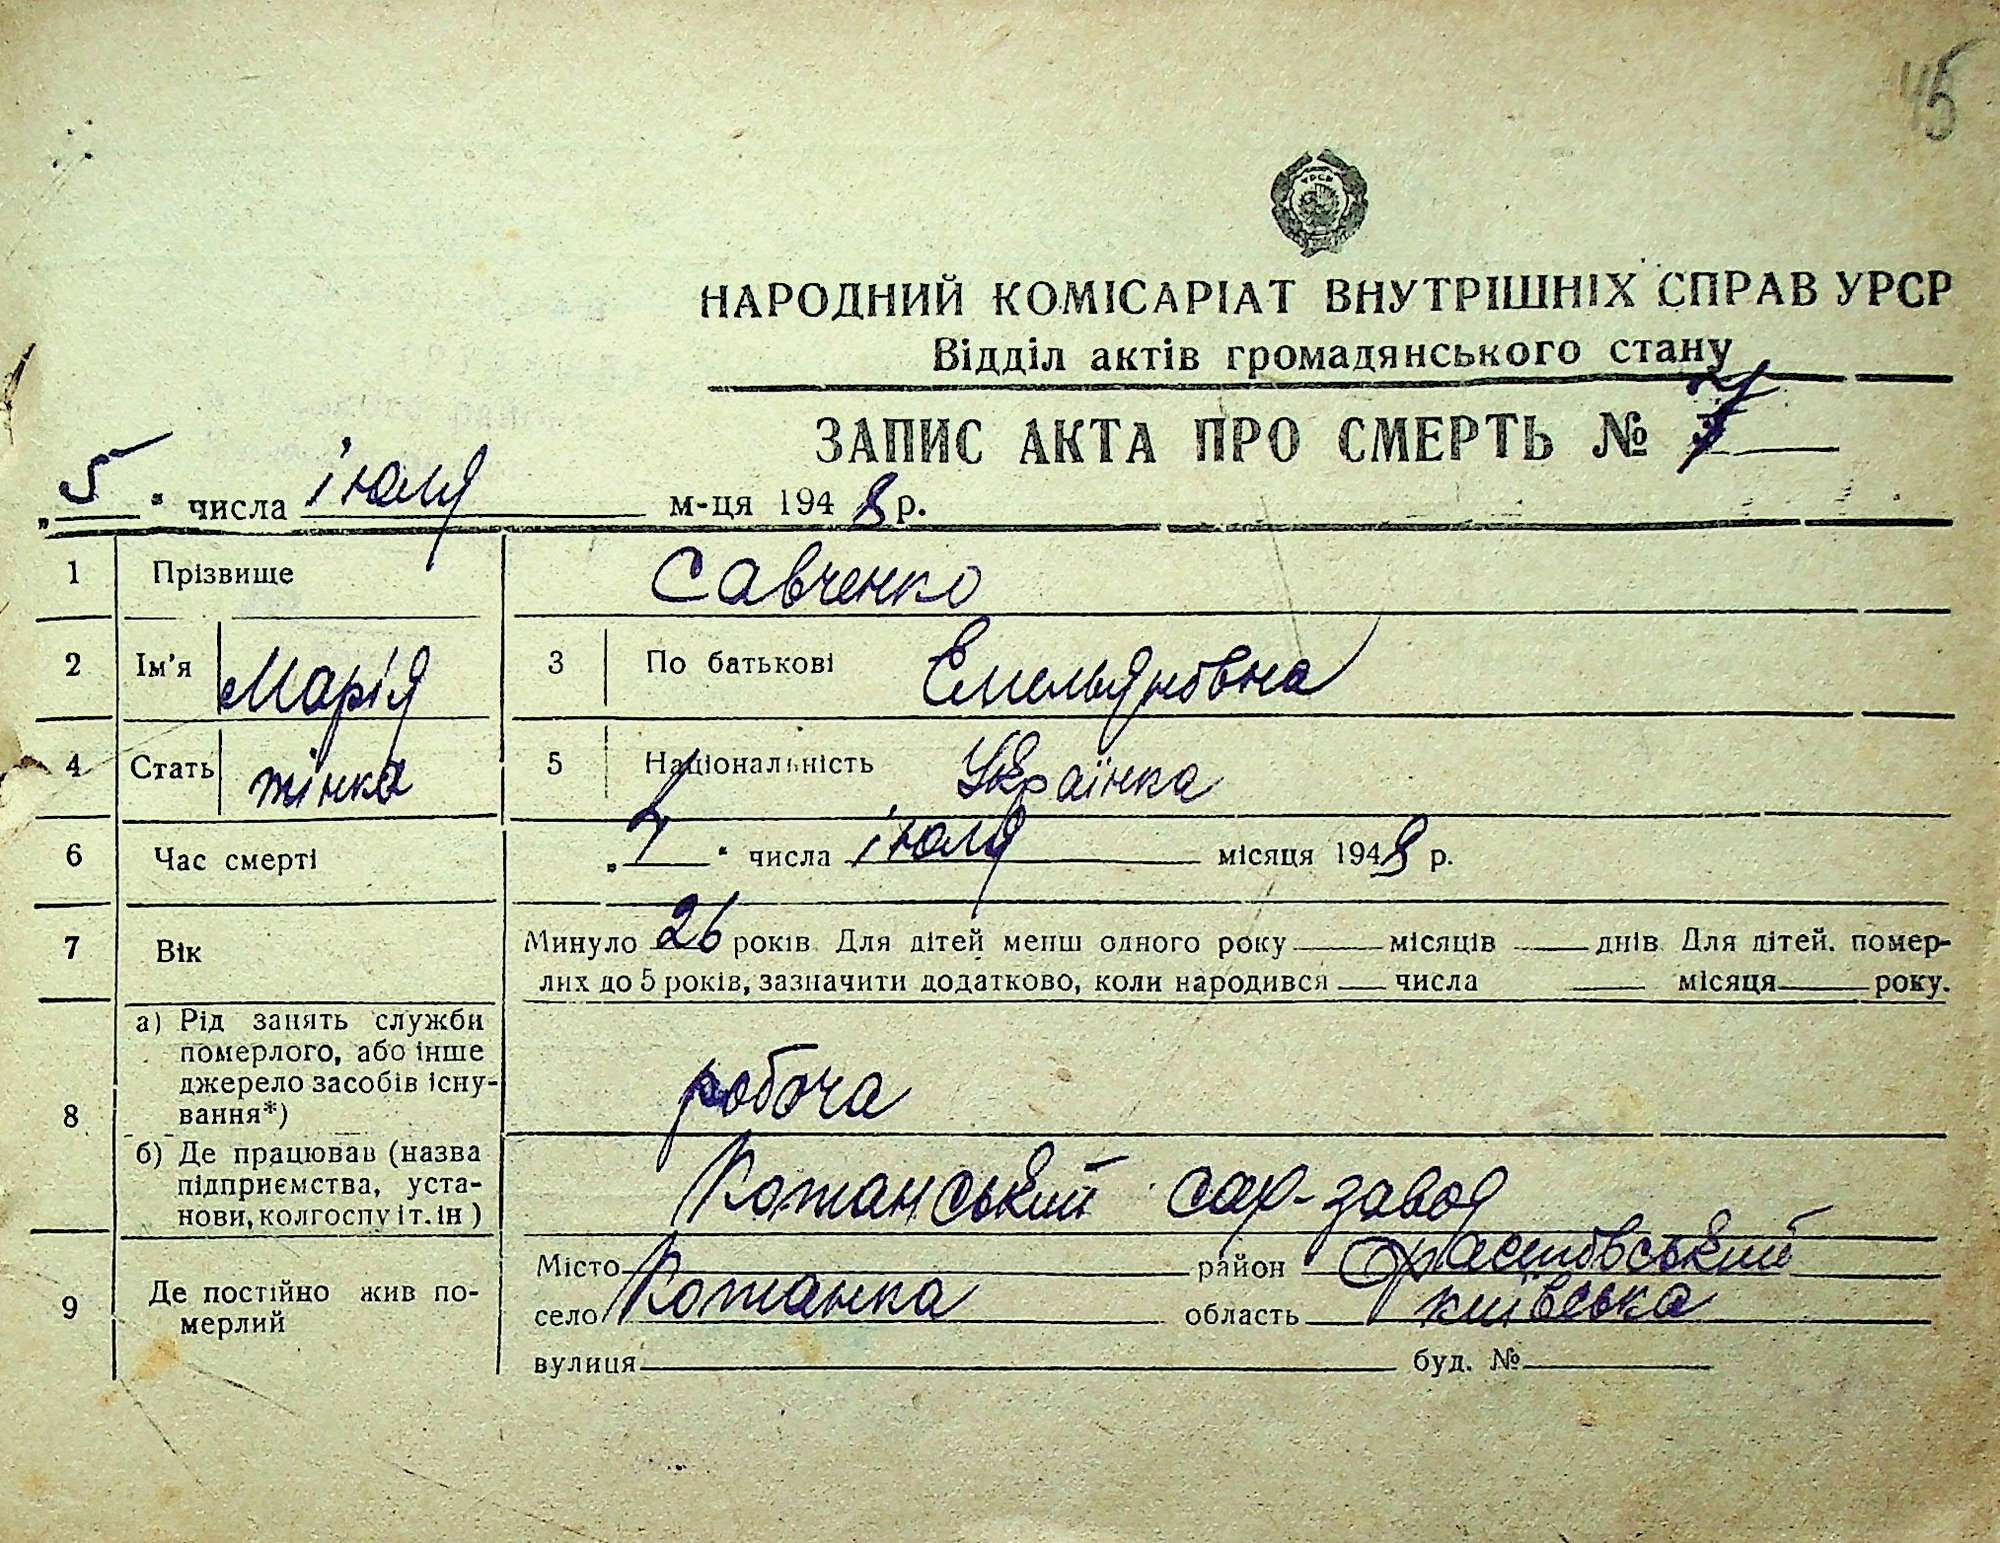 45
УРСР
НАРОДНИЙ КОМІСАРІАТ ВНУТРІШНІХ СПРАВ УРСР
Відділ актів громадянського стану
ЗАПИС АКТА ПРО СМЕРТЬ № 7
„5" числа іюля м-ця 1948 р.
1 Прізвище Савченко
2 Ім'я Марія 3 По батькові Емельяновна
4 Стать жінка 5 Національність Українка
6 Час смерті „ " числа іюля місяця 1948 р.
7 Вік Минуло 26 років Для дітей менш одного року місяців днів Для дітей, помер-
лих до 5 років, зазначити додатково, коли народився числа місяця року.
8 а) Рід занять служби
померлого, або інше
джерело засобів існу-
вання*) робоча
б) Де працював (назва
підприємства, уста-
нови, колгоспу і т. ін) Кожанський сах-завод
9 Де постійно жив по-
мерлий
Місто район Фастовський
село Кожанка область київська
вулиця буд. №